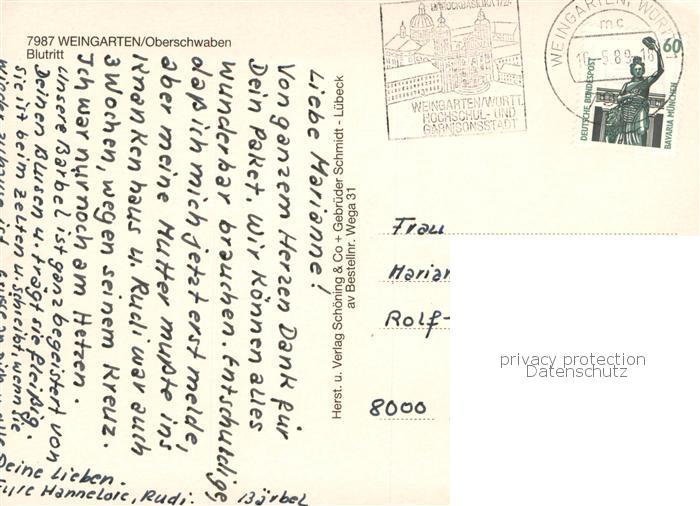 7987 WEINGARTEN/Oberschwaben
Blutritt
Liebe Marianne!
Von ganzem Herzen Dank für
Dein Paket. Wir können alles
wunderbar brauchen. Entschuldige,
daß ich mich jetzt erst melde,
aber meine Mutter mußte ins
Krankenhaus u. Rudi war auch
3 Wochen, wegen seinem Kreuz.
Ich war nur noch am Hetzen.
Unsere Bärbel ist ganz begeistert von
Deinen Blusen u. trägt sie fleißig.
Sie ist beim Zelten u. schreibt, wenn sie
wieder zuhause ist.
Deine Lieben.
Eure Hannelore, Rudi. Bärbel
Herst. u. Verlag Schöning & Co + Gebrüder Schmidt - Lübeck
av Bestellnr. Wega 31
BAROCKBASILIKA 1724
WEINGARTEN/WÜRTT.
HOCHSCHUL- UND
GARNISONSSTADT
WEINGARTEN, WÜRTT
mc
16.-5.89-18
60
DEUTSCHE BUNDESPOST
BAVARIA MÜNCHEN
Frau
Marian
Rolf-
8000
privacy protection
Datenschutz